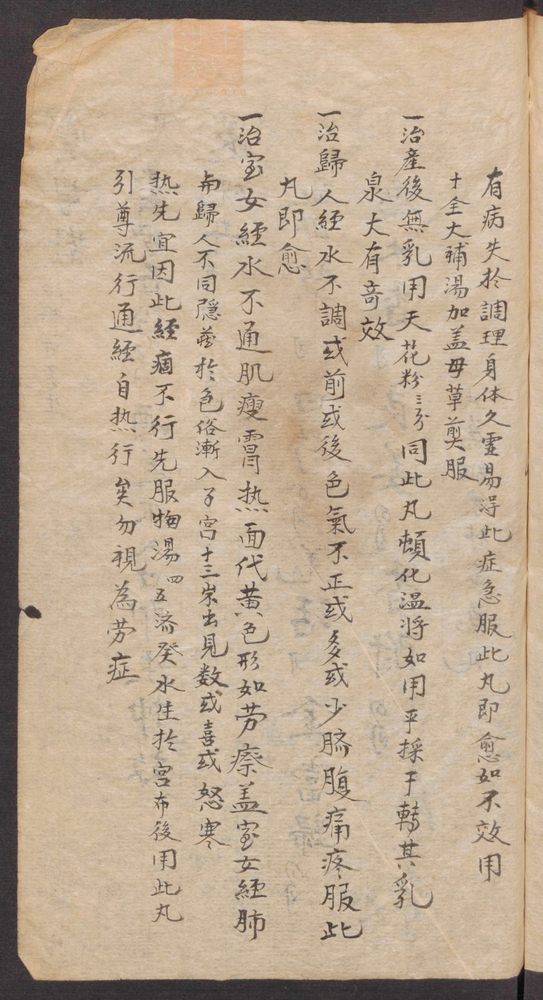 有病失於調理身体久虚易得此症急服此丸即愈如不效用
十全大補湯加益母草煎服
一治產後無乳用天花粉三分同此丸頓化温將如用平採于轉其乳
泉大有奇效
一治歸人經水不調或前或後色氣不正或多或少臍腹痛疼服此
丸即愈
一治室女經水不通肌瘦骨热面代黄色形如劳瘵盖室女經肺
与歸人不同隠 於色俗漸入子宫十三 出見数或喜或怒寒
热先宜因此經痼不行先服物湯四五濟癸水生於宫布後用此丸
引導流行通經自热行矣勿視為劳症